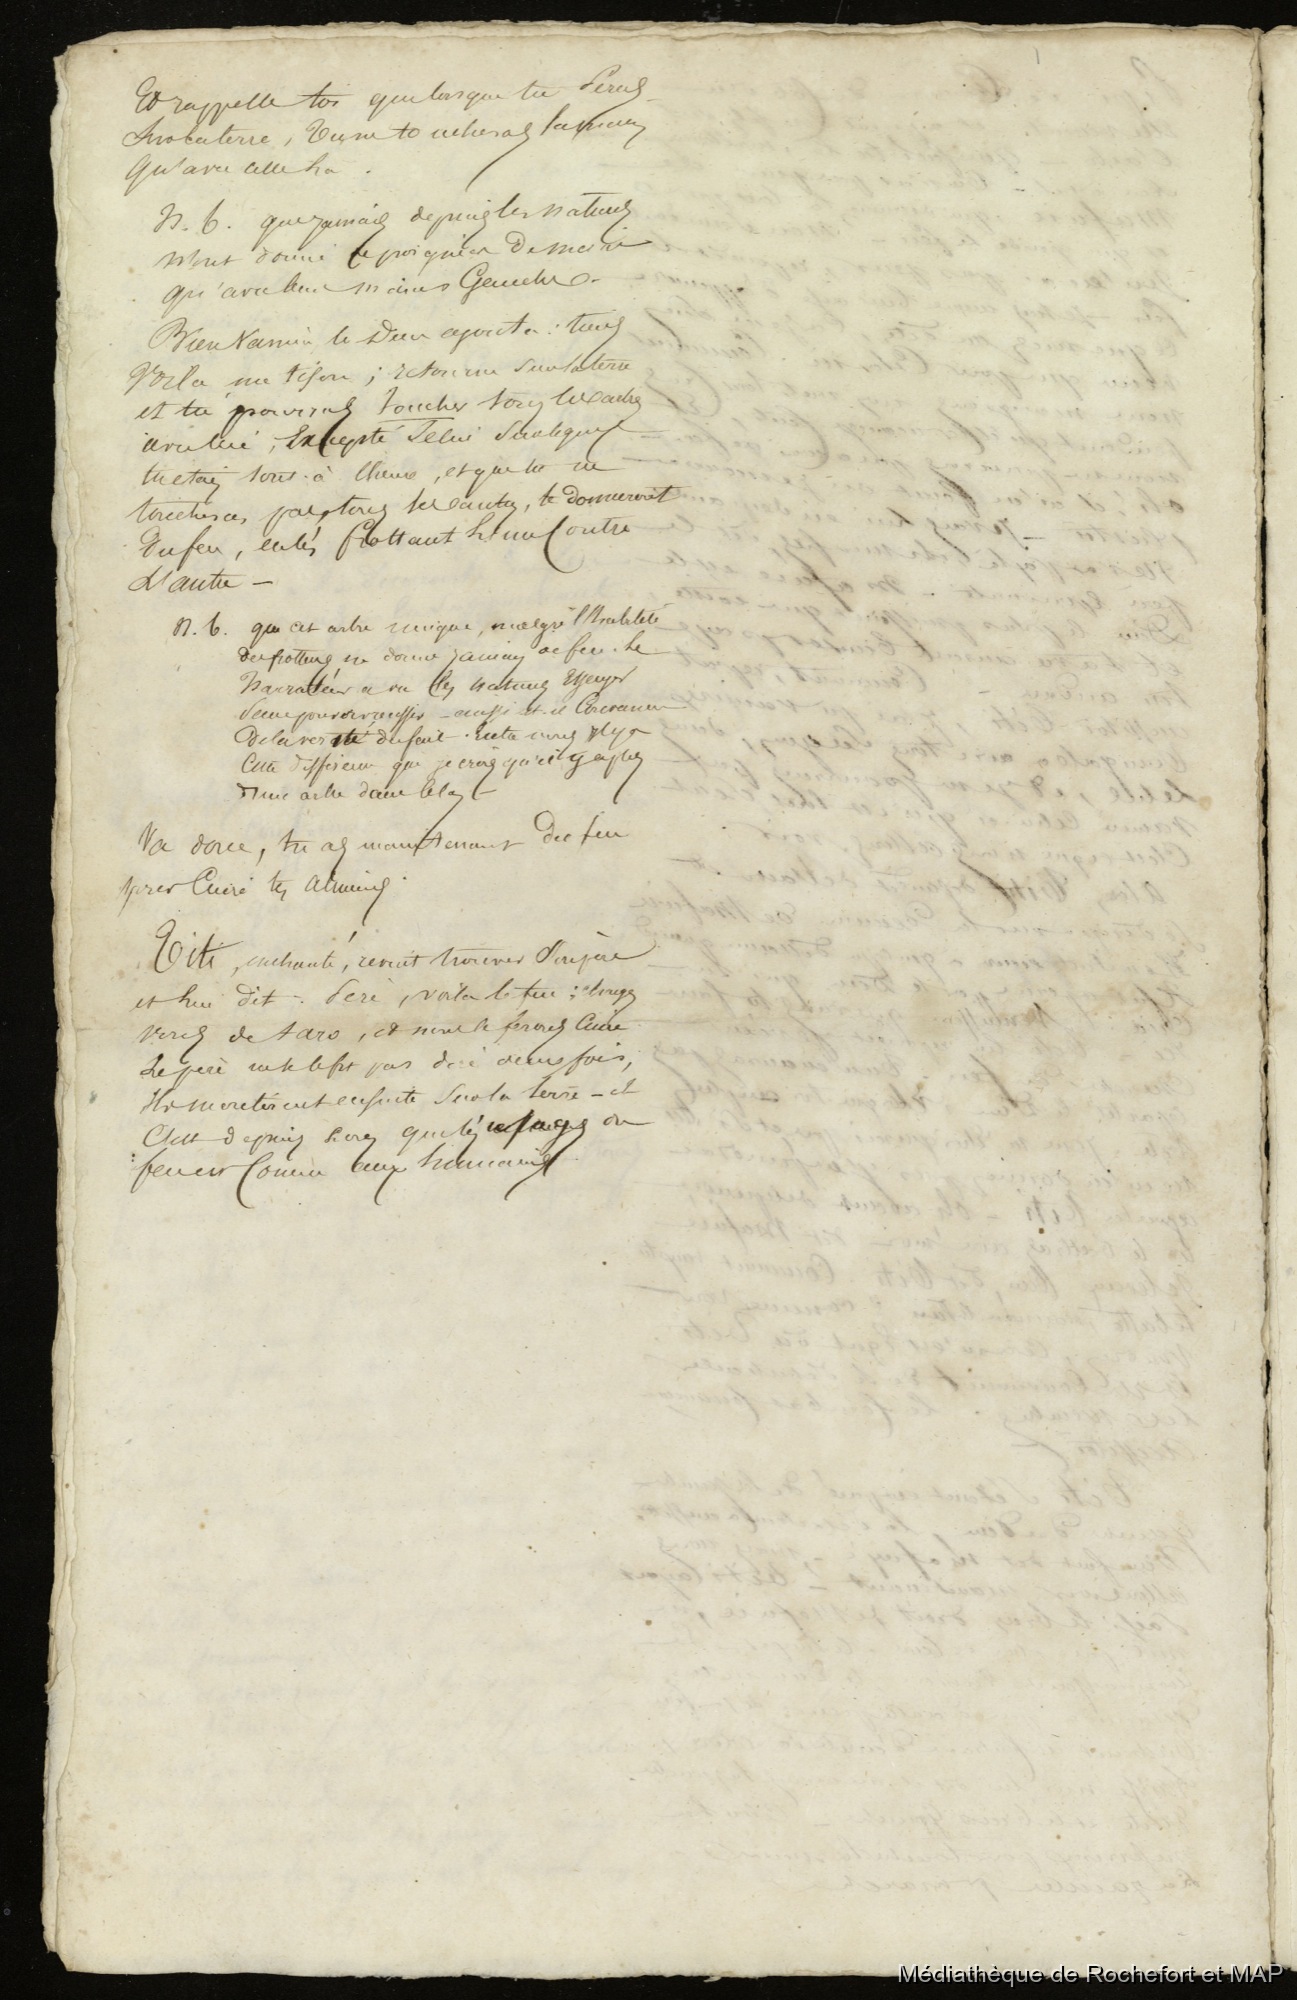 Et rappelle toi que lorsque tu seras
sur la terre, tu ne toucheras la main
qu'avec celle là.
N. b. que jamais depuis les naturels
n'ont donné de poignées de main
qu'avec leurs mains Gauches.
Bien Kamin le Dieu ajouta: tiens
Voila un tison; retourne sur la terre
et tu pourras toucher tous les arbres
avec lui, Excepté Celui sur lequel
tu etais tout-à l'heure, et que tu ne
toucheras pas, tous les autres, te donneront
Du feu, en les frottant l'un Contre
L'autre —
N. b. que cet arbre unique, malgré l'habileté
des frotteurs ne donne jamais de feu. Le
Narrateur a vu les naturels Essayer
sans pouvoir reussir — aussi est-il Convaincu
De la verité du fait. Entre nous il y a
Cette différence que je crois qu'il y a plus
d'un arbre dans le
Va donc, tu as maintenant Du feu
pour Cuire tes alimens.
Titi, enchanté, revint trouver son père
et lui dit: Père, voila le feu;
de taro, et nous le ferons Cuire.
Le père ne le fit pas dire deux fois,
Ils monterent ensuite sur la terre — et
C'est depuis lors que les usages du
feu est Connu aux humains.
Médiathèque de Rochefort et MAP